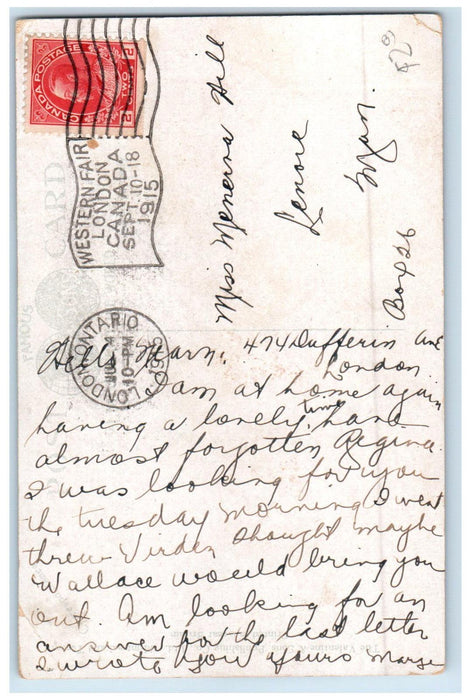 CANADA POSTAGE
2 TWO CENTS 2
WESTERN FAIR
LONDON
CANADA
SEPT. 10-18
1915
LONDON, ONTARIO
JUL
10-PM
1915
Miss Menerva Hill
Lenore
Man.
Box 26
$2
CARD
FAMOUS
Hello Marn. 474 Dufferin Ave
London
I am at home again
having a lovely time, have
almost forgotten Regina.
I was looking for you
the tuesday morning I went
threw Virden thought maybe
Wallace would bring you
out. Am looking for an
answer for the last letter
I wrote you yours Marge
The Valentine & Sons Publishing